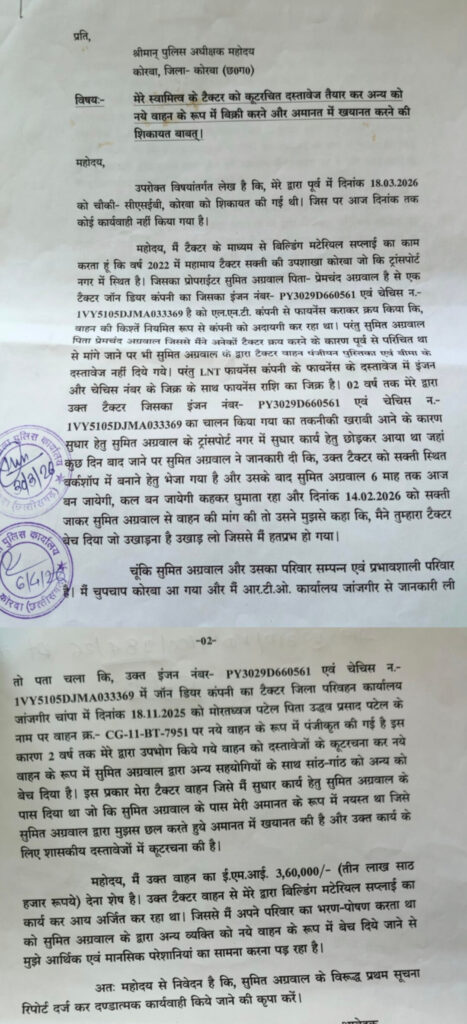 प्रति,
श्रीमान् पुलिस अधीक्षक महोदय
कोरबा, जिला- कोरबा (छ०ग०)
विषयः- मेरे स्वामित्व के टैक्टर को कूटरचित दस्तावेज तैयार कर अन्य को
नये वाहन के रूप में बिक्री करने और अमानत में खयानत करने की
शिकायत बाबत्।
महोदय,
उपरोक्त विषयांतर्गत लेख है कि, मेरे द्वारा पूर्व में दिनांक 18.03.2026
को चौकी- सीएसईबी, कोरबा को शिकायत की गई थी। जिस पर आज दिनांक तक
कोई कार्यवाही नहीं किया गया है।
महोदय, मैं टैक्टर के माध्यम से बिल्डिंग मटेरियल सप्लाई का काम
करता हूं कि वर्ष 2022 में महामाय टैक्टर सक्ती की उपशाखा कोरबा जो कि ट्रांसपोर्ट
नगर में स्थित है। जिसका प्रोपराईटर सुमित अग्रवाल पिता- प्रेमचंद अग्रवाल है से एक
टैक्टर जॉन डियर कंपनी का जिसका इंजन नंबर- PY3029D660561 एवं चेचिस न.-
1VY5105DJMA033369 है को एल.एन.टी. से फायनेंस कराकर क्रय किया कि,
वाहन की किश्तें नियमित रूप से कंपनी को अदायगी कर रहा था। परंतु सुमित अग्रवाल
पिता प्रेमचंद अग्रवाल जिससे मैंने अनेकों टैक्टर क्रय करने के कारण पूर्व से परिचित था
से मांगे जाने पर भी सुमित अग्रवाल के द्वारा टैक्टर वाहन पंजीयन पुस्तिका एवं बीमा के
दस्तावेज नहीं दिये गये। परंतु LNT फायनेंस कंपनी के फायनेंस के दस्तावेज में इंजन
और चेचिस नंबर के जिक्र के साथ फायनेंस राशि का जिक्र है। 02 वर्ष तक मेरे द्वारा
उक्त टैक्टर जिसका इंजन नंबर- PY3029D660561 एवं चेचिस न.-
1VY5105DJMA033369 का चालन किया गया का तकनीकी खराबी आने के कारण
सुधार हेतु सुमित अग्रवाल के ट्रांसपोर्ट नगर में सुधार कार्य हेतु छोड़कर आया था जहां
कुछ दिन बाद जाने पर सुमित अग्रवाल ने जानकारी दी कि, उक्त टैक्टर को सक्ती स्थित
वर्कशॉप में बनाने हेतु भेजा गया है और उसके बाद सुमित अग्रवाल 6 माह तक आज
बन जायेगी, कल बन जायेगी कहकर घुमाता रहा और दिनांक 14.02.2026 को सक्ती
जाकर सुमित अग्रवाल से वाहन की मांग की तो उसने मुझसे कहा कि, मैंने तुम्हारा टैक्टर
बेच दिया जो उखाड़ना है उखाड़ लो जिससे मैं हतप्रभ हो गया।
चूंकि सुमित अग्रवाल और उसका परिवार सम्पन्न एवं प्रभावशाली परिवार
है। मैं चुपचाप कोरबा आ गया और मैं आर.टी.ओ. कार्यालय जांजगीर से जानकारी ली
पुलिस कार्यालय
पुलिस कार्यालय
6/4/26
कोरबा (छत्तीसगढ़)
-02-
तो पता चला कि, उक्त इंजन नंबर- PY3029D660561 एवं चेचिस न.-
1VY5105DJMA033369 में जॉन डियर कंपनी का टैक्टर जिला परिवहन कार्यालय
जांजगीर चांपा में दिनांक 18.11.2025 को मोरतध्वज पटेल पिता उद्धव प्रसाद पटेल के
नाम पर वाहन क्र.- CG-11-BT-7951 पर नये वाहन के रूप में पंजीकृत की गई है इस
कारण 2 वर्ष तक मेरे द्वारा उपभोग किये गये वाहन को दस्तावेजों के कूटरचना कर नये
वाहन के रूप में सुमित अग्रवाल द्वारा अन्य सहयोगियों के साथ सांठ-गांठ को अन्य को
बेच दिया है। इस प्रकार मेरा टैक्टर वाहन जिसे मैं सुधार कार्य हेतु सुमित अग्रवाल के
पास दिया था जो कि सुमित अग्रवाल के पास मेरी अमानत के रूप में नयस्त था जिसे
सुमित अग्रवाल द्वारा मुझसे छल करते हुये अमानत में खयानत की है और उक्त कार्य के
लिए शासकीय दस्तावेजों में कूटरचना की है।
महोदय, मैं उक्त वाहन का ई.एम.आई. 3,60,000/- (तीन लाख साठ
हजार रूपये) देना शेष है। उक्त टैक्टर वाहन से मेरे द्वारा बिल्डिंग मटेरियल सप्लाई का
कार्य कर आय अर्जित कर रहा था। जिससे मैं अपने परिवार का भरण-पोषण करता था
को सुमित अग्रवाल के द्वारा अन्य व्यक्ति को नये वाहन के रूप में बेच दिये जाने से
मुझे आर्थिक एवं मानसिक परेशानियां का सामना करना पड़ रहा है।
अतः महोदय से निवेदन है कि, सुमित अग्रवाल के विरूद्ध प्रथम सूचना
रिपोर्ट दर्ज कर दण्डात्मक कार्यवाही किये जाने की कृपा करें।